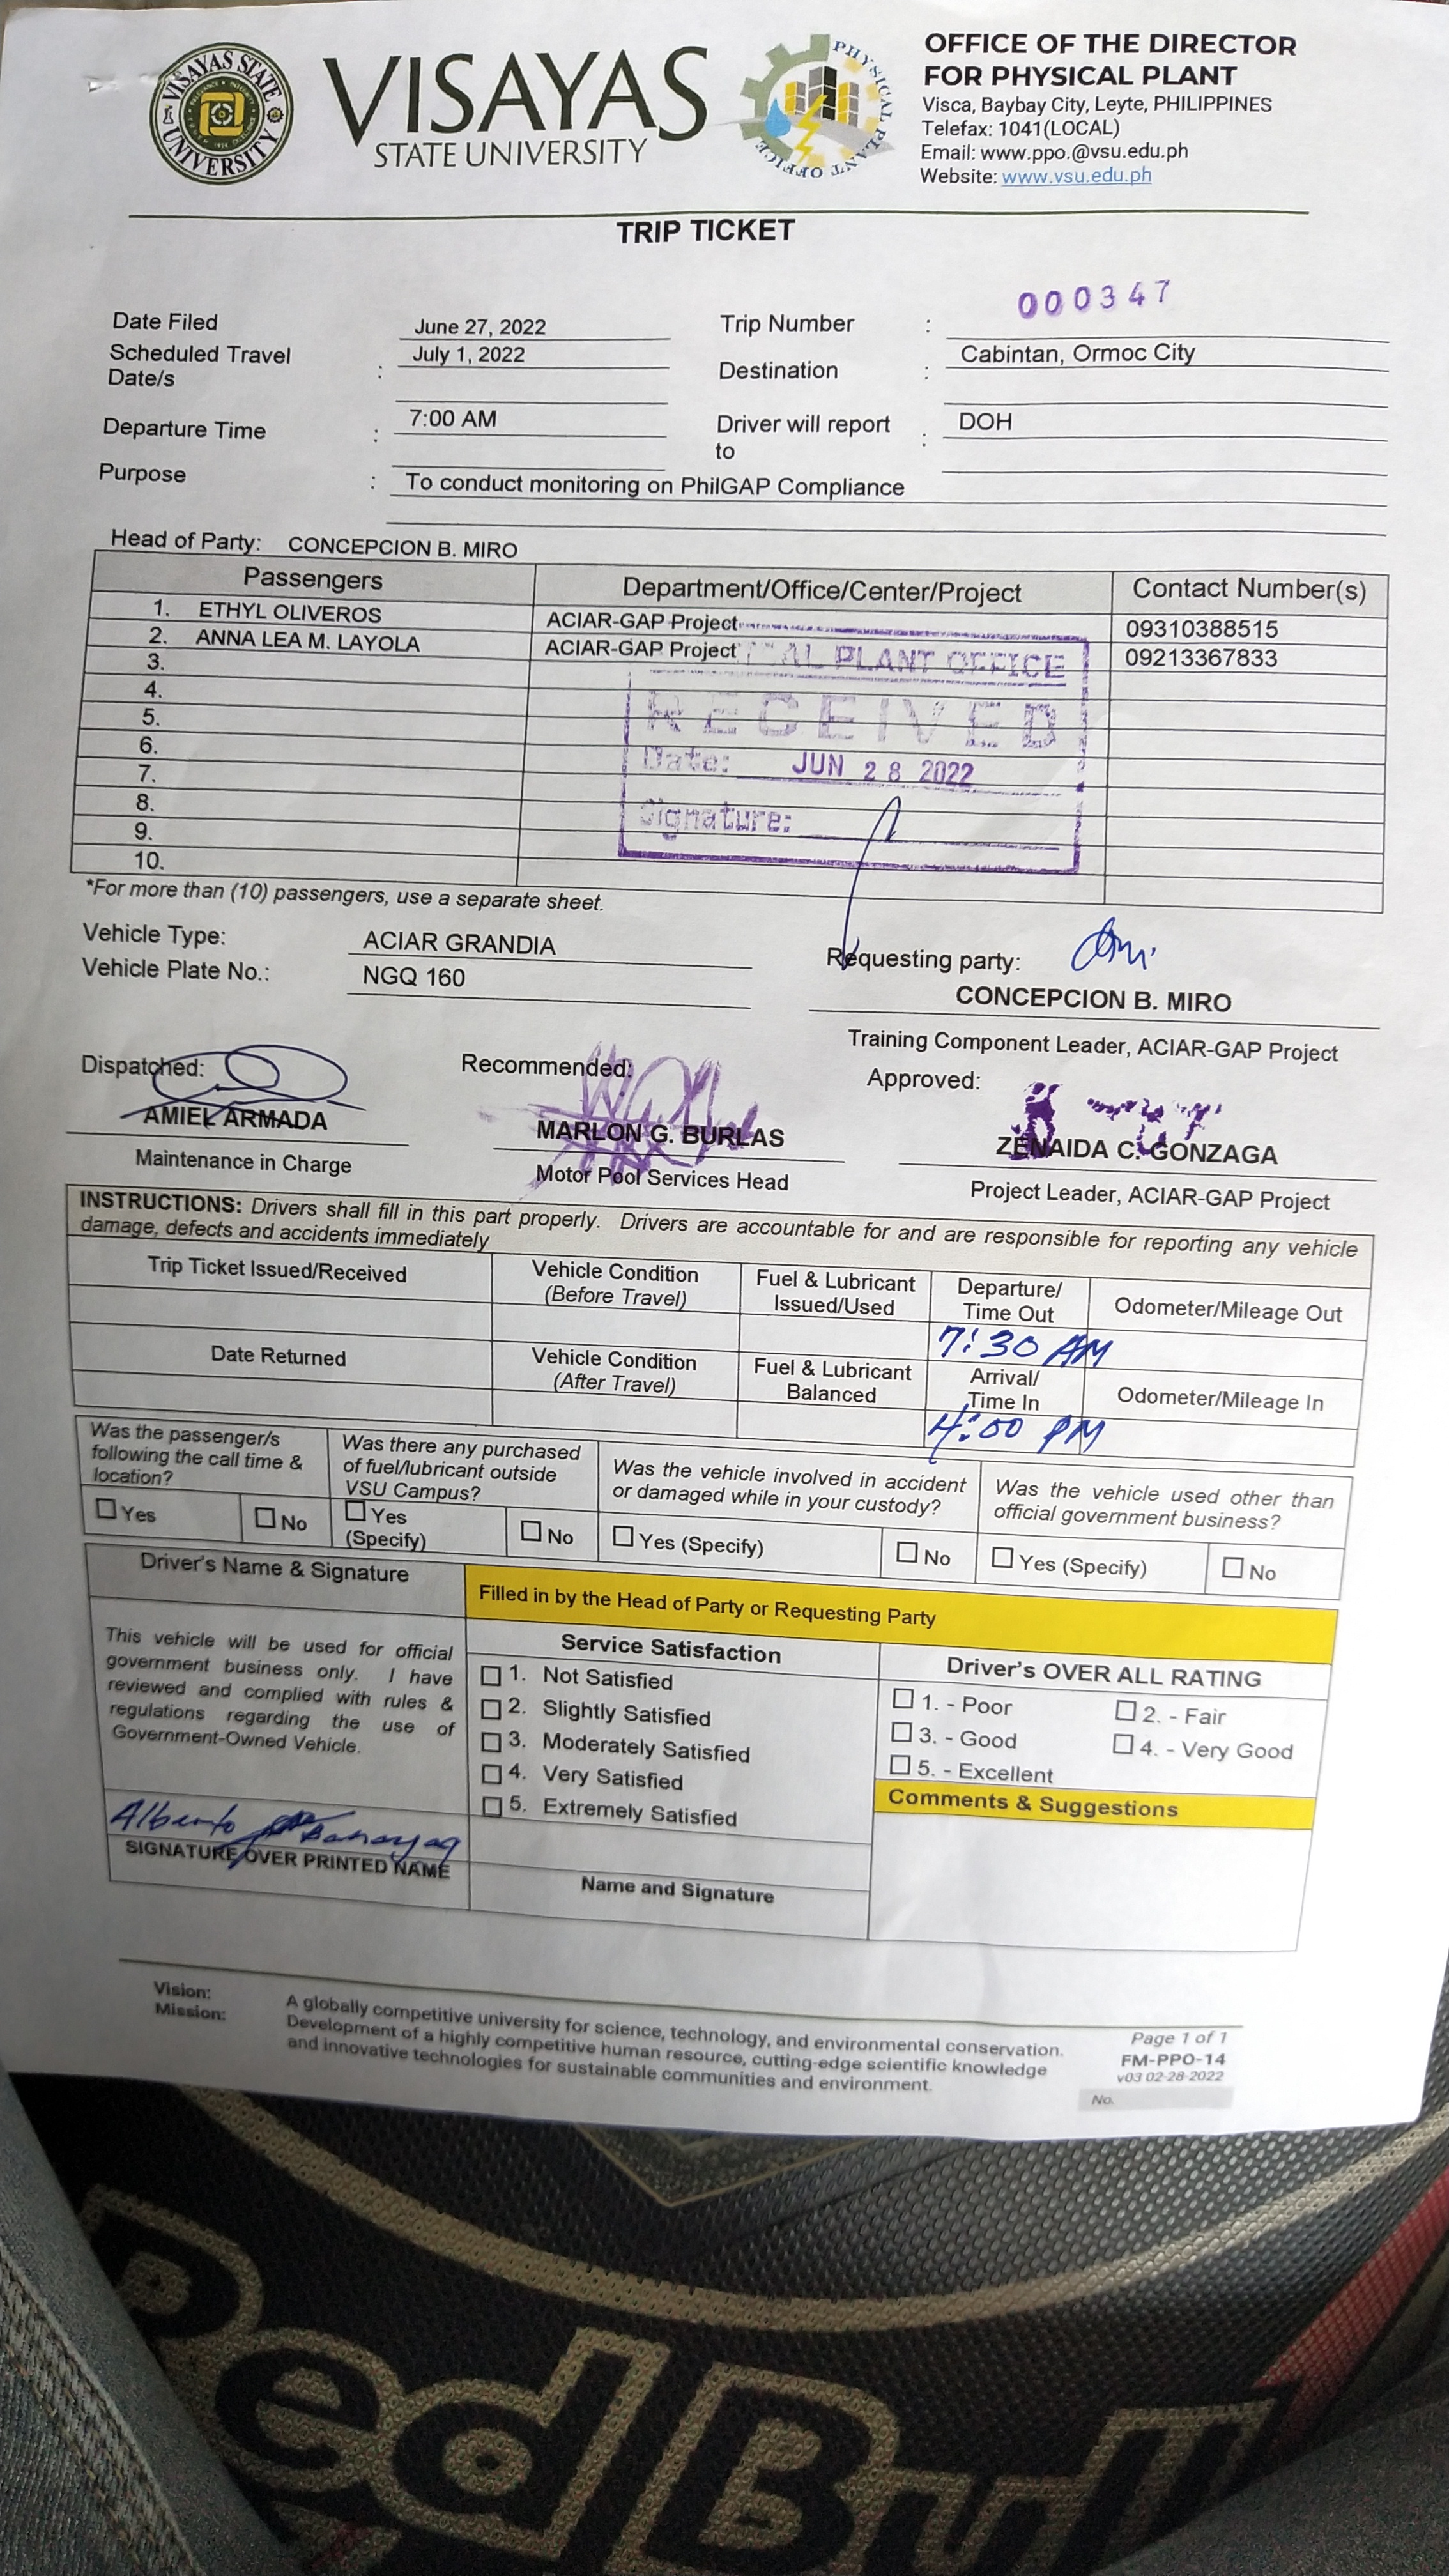 VISAYAS STATE UNIVERSITY
VISAYAS
STATE UNIVERSITY
PHYSICAL PLANT OFFICE
OFFICE OF THE DIRECTOR
FOR PHYSICAL PLANT
Visca, Baybay City, Leyte, PHILIPPINES
Telefax: 1041(LOCAL)
Email: www.ppo.@vsu.edu.ph
Website: www.vsu.edu.ph
TRIP TICKET
000347
Date Filed June 27, 2022 Trip Number :
Scheduled Travel Date/s : July 1, 2022 Destination : Cabintan, Ormoc City
Departure Time : 7:00 AM Driver will report to : DOH
Purpose : To conduct monitoring on PhilGAP Compliance
Head of Party: CONCEPCION B. MIRO
Passengers Department/Office/Center/Project Contact Number(s)
1. ETHYL OLIVEROS ACIAR-GAP Project 09310388515
2. ANNA LEA M. LAYOLA ACIAR-GAP Project 09213367833
3.
4.
5.
6.
7.
8.
9.
10.
AL PLANT OFFICE
RECEIVED
Date: JUN 28 2022
Signature:
*For more than (10) passengers, use a separate sheet.
Vehicle Type: ACIAR GRANDIA
Vehicle Plate No.: NGQ 160
Requesting party:
CONCEPCION B. MIRO
Training Component Leader, ACIAR-GAP Project
Dispatched: Recommended: Approved:
AMIEL ARMADA MARLON G. BURLAS ZENAIDA C. GONZAGA
Maintenance in Charge Motor Pool Services Head Project Leader, ACIAR-GAP Project
INSTRUCTIONS: Drivers shall fill in this part properly. Drivers are accountable for and are responsible for reporting any vehicle
damage, defects and accidents immediately
Trip Ticket Issued/Received Vehicle Condition (Before Travel) Fuel & Lubricant Issued/Used Departure/ Time Out Odometer/Mileage Out
7:30 AM
Date Returned Vehicle Condition (After Travel) Fuel & Lubricant Balanced Arrival/ Time In Odometer/Mileage In
4:00 PM
Was the passenger/s following the call time & location?
Yes No
Was there any purchased of fuel/lubricant outside VSU Campus?
Yes (Specify) No
Was the vehicle involved in accident or damaged while in your custody?
Yes (Specify) No
Was the vehicle used other than official government business?
Yes (Specify) No
Driver's Name & Signature
This vehicle will be used for official
government business only. I have
reviewed and complied with rules &
regulations regarding the use of
Government-Owned Vehicle.
Alberto
SIGNATURE OVER PRINTED NAME
Filled in by the Head of Party or Requesting Party
Service Satisfaction
1. Not Satisfied
2. Slightly Satisfied
3. Moderately Satisfied
4. Very Satisfied
5. Extremely Satisfied
Name and Signature
Driver's OVER ALL RATING
1. - Poor 2. - Fair
3. - Good 4. - Very Good
5. - Excellent
Comments & Suggestions
Vision: A globally competitive university for science, technology, and environmental conservation.
Mission: Development of a highly competitive human resource, cutting-edge scientific knowledge
and innovative technologies for sustainable communities and environment.
Page 1 of 1
FM-PPO-14
v03 02-28-2022
No.
Red Bull